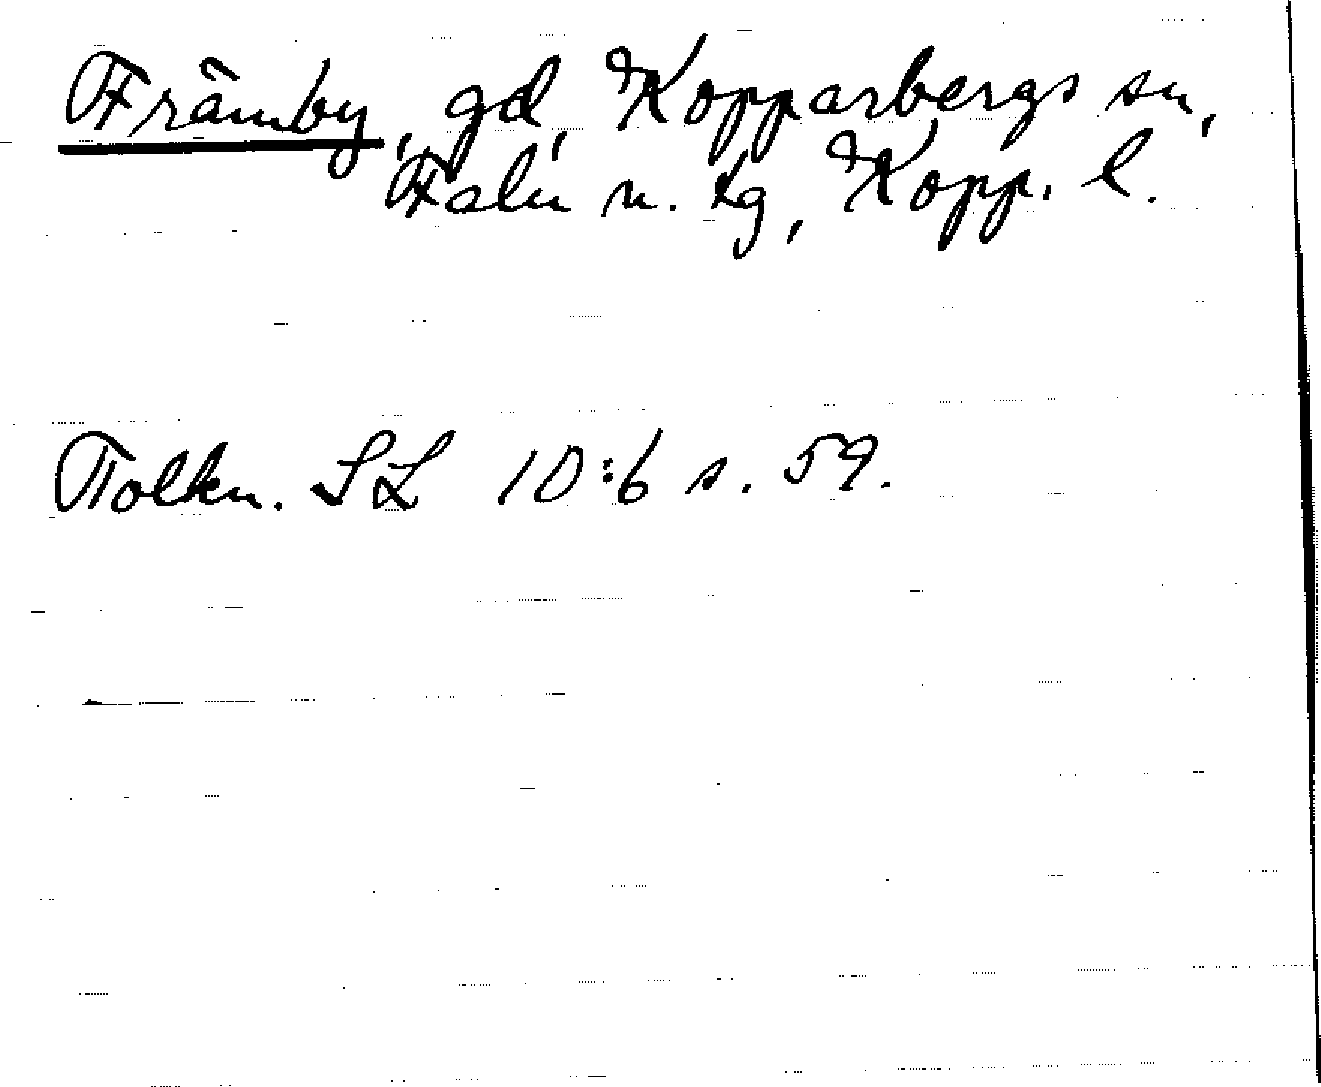 Främby, gd, Kopparbergs sn,
Falu n. tg, Kopp. l.
Tolkn. SL 10:6 s. 59.